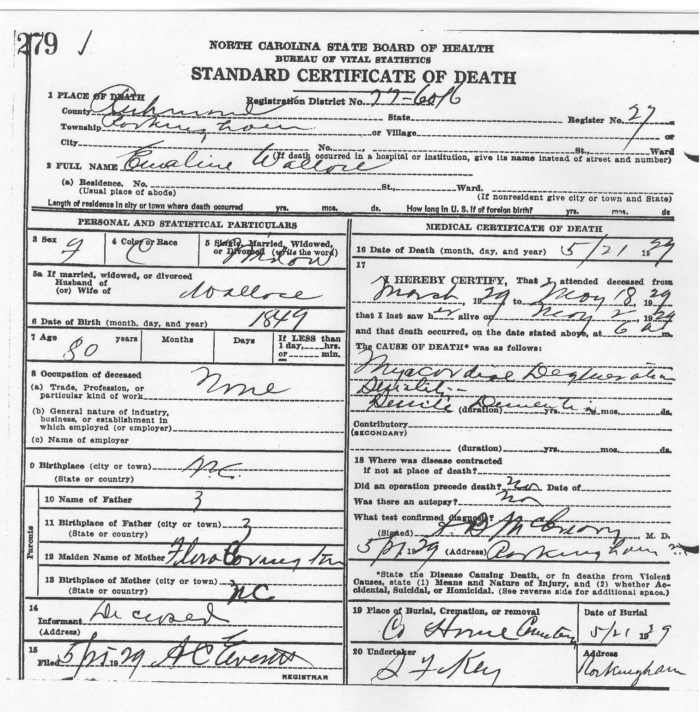 279 1
NORTH CAROLINA STATE BOARD OF HEALTH
BUREAU OF VITAL STATISTICS
STANDARD CERTIFICATE OF DEATH
1 PLACE OF DEATH
Registration District No. 77-6016
County Richmond State Register No. 27
Township Rockingham or Village
City No. St., Ward
(If death occurred in a hospital or institution, give its name instead of street and number)
2 FULL NAME Emaline Wallace
(a) Residence. No. St., Ward.
(Usual place of abode) (If nonresident give city or town and State)
Length of residence in city or town where death occurred yrs. mos. ds. How long in U. S. if of foreign birth? yrs. mos. ds
PERSONAL AND STATISTICAL PARTICULARS
3 Sex 4 Color or Race C 5 Single, Married, Widowed, or Divorced (write the word) Widow
5a If married, widowed, or divorced
Husband of
(or) Wife of Wallace
6 Date of Birth (month, day, and year) 1849
7 Age 80 years Months Days If LESS than
1 day, hrs.
or min.
8 Occupation of deceased None
(a) Trade, Profession, or
particular kind of work
(b) General nature of industry,
business, or establishment in
which employed (or employer)
(c) Name of employer
9 Birthplace (city or town) N.C.
(State or country)
Parents
10 Name of Father ?
11 Birthplace of Father (city or town) ?
(State or country)
12 Maiden Name of Mother Flora Covington
13 Birthplace of Mother (city or town)
(State or country) NC
14
Informant Deceased
(Address)
15
Filed 19 29
REGISTRAR
MEDICAL CERTIFICATE OF DEATH
16 Date of Death (month, day, and year) 5/21 1929
17
I HEREBY CERTIFY, That I attended deceased from
March, 1929 to May 18, 1929
that I last saw her alive on May 1929
and that death occurred, on the date stated above, at 6 a m.
The CAUSE OF DEATH* was as follows:
Myocardial Degeneration
Senility
Senile Dementia
(duration) yrs. mos. ds.
Contributory
(SECONDARY)
(duration) yrs. mos. ds.
18 Where was disease contracted
if not at place of death?
Did an operation precede death? no Date of
Was there an autopsy? no
What test confirmed diagnosis?
(Signed) M. D.
19 29 (Address) Rockingham
*State the Disease Causing Death, or in deaths from Violent
Causes, state (1) Means and Nature of Injury, and (2) whether Ac-
cidental, Suicidal, or Homicidal. (See reverse side for additional space.)
19 Place of Burial, Cremation, or removal Date of Burial
Co Home Cemetery 5/21 1929
20 Undertaker Address
Key Rockingham